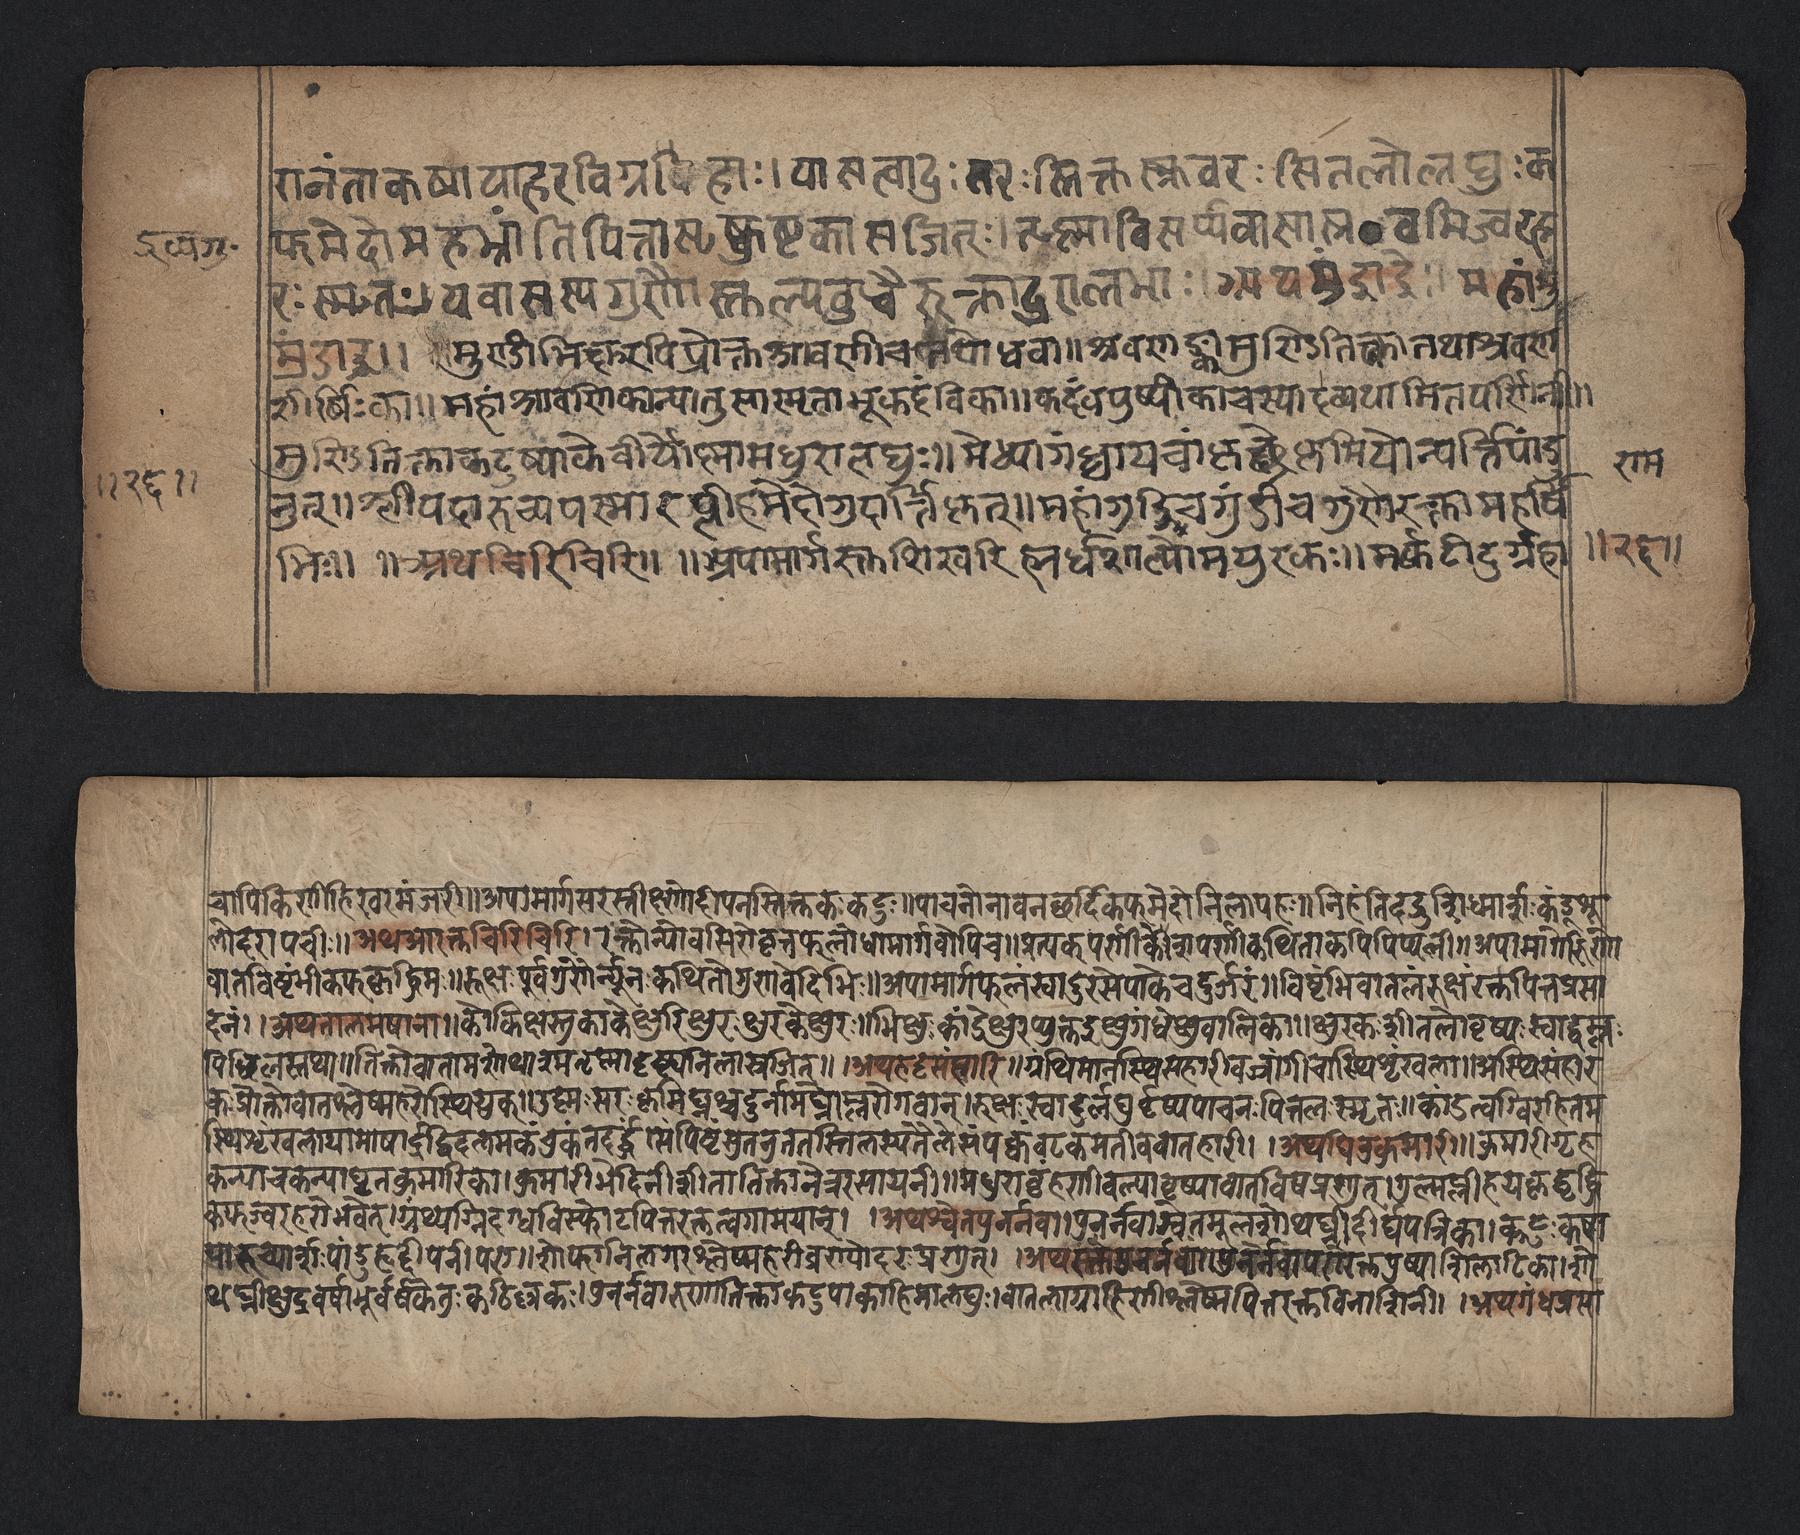 रानंताकषायाहरविग्रहा:। यासस्वादु: सर:स्तिक्तस्तुवर: सितलोलघु:क
द्रव्यगु॰
फमेदोमदभ्रांतिपित्तासृक्कुष्टकासजित्:। तृष्माविसर्प्पवासास्रवमिज्वरह
र:स्मृत:। यवासस्यगुणैस्तुल्पबुधैरुक्तादुरालभा:। अथमुंडाढ:। महांमु
मुंडाढ।। मुण्डीभिक्षुरपिप्रोक्तश्रावणीचतपोधना॥श्रवणाह्वामुण्डितिक्कातथाश्रवण
शीर्षिका॥महांश्रावणिकान्यातुसास्मृताभूकदंविका॥कदंवपुष्पीकाचस्यादव्यथामितपस्विनी॥
मुण्डितिक्ताकटुष्पाकेवीर्योष्मामधुरालघु:॥मेध्यागंधापचांकृछ्रकृमियोन्यर्त्तिपांडु
॥२६॥
राम
नुत्॥श्लीपदारुच्यपस्मारप्लीहमेदोगुदार्त्तिकृत्॥महांमुंडिचमुंडीचगुणैरुक्तामहर्षि
भि:॥ ॥अथचिरिचिरि॥ ॥अपामार्गस्तुशिखरिह्यर्धशल्पोमयुरक:॥मर्कटीदुर्ग्रहा
॥२६॥
चापिकिणीहिखरमंजरी॥अपामार्गसरस्तीक्ष्णोदीपनस्तिक्तक:कटु:॥पाचनोनावनछर्दिकफमेदोनिलापह:॥निहंतिदद्रुशिध्मार्श:कंडूशू
लोदरापची:॥अथआरक्तचिरिचिरि। रक्तोन्योवसिरोवृत्तफलोधामार्गवोपिच॥प्रत्यकपर्णीकेशपर्णीकथिताकपिपिप्पली॥अपामार्गोरुणो
वातविष्टंभीकफकृद्धिम:॥रुक्ष:पूर्वगुणैर्न्यून:कथितोगुणवेदिभि:॥अपामार्गफलंस्वादुरसेपाकेचदुर्जरं॥विष्टंभिवातलंरुक्षंरक्तपित्तप्रसा
दनं। ।अथतालमषाना॥कोकिक्षस्तुकाकेक्षुरिक्षुर:क्षुरकेक्षुर:॥भिक्षु:कांडेक्षुरप्युक्तइक्षुगंधेक्षुवालिका॥क्षुरक:शीतलोवृष्य:स्वाद्वम्ल:
पिछिलस्तथा॥तिक्तोवातामशोथाश्मतृष्मादृष्ट्यनिलास्रजित्॥ ।अथहडसंघारि॥ग्रंथिमानस्थिसंहारीवज्रांगीचास्थिशृंखला॥अस्थिसंहार
क:प्रोक्तोवातश्लेष्महरोस्थियुक्॥उष्म:सर:कृमिघ्नश्चदुर्नामघ्नोक्षिरोगवान्।रुक्ष:स्वादुर्लघुर्वृष्यपाचन:पित्तल:स्मृत:॥कांडत्वग्विरहितम
स्थिशृंखलायामाषार्द्रंद्विदलमकंचुकंतदर्द्धं।संपिष्टंसुतनुततस्तिलस्यतैलेसंपक्वंवटकमतीववातहारी। ।अथघिउकुमारि॥कुमारीगृह
कन्याचकन्याघृतकुमारिका।कुमारीभेदिनीशीतातिक्तानेत्ररसायनी॥मधुरावृंहणीवल्यावृष्यावातविषप्रणुत्।गुल्मप्लीहयकृद्वृद्धि
कफज्वरहरीभवेत्।ग्रंथ्यग्निदग्धविस्फोटपित्तरक्तत्वगामयान्। ।अथश्वेतपुनर्नवा।पुनर्नवाश्वेतमूलशोथघ्नीदीर्घपत्रिका।कटु:कषा
यारुच्यार्श:पांडुहृद्दीपनीपरा।शोफानिलगरश्लेष्महरीव्रणोदरप्रणुत्। ।अथरक्तपुनर्नवा।पुनर्नवापरारक्तपुष्पाशिलाटिका।शो
थघ्नीक्षुद्रवर्षाभूर्वर्षकेतु:कठिल्लक:।पुनर्नवारुणातिक्ताकटुपाकाहिमालघु:।वातलाग्राहिणीश्लेष्मपित्तरक्तविनाशिनी। ।अथगंधप्रसा